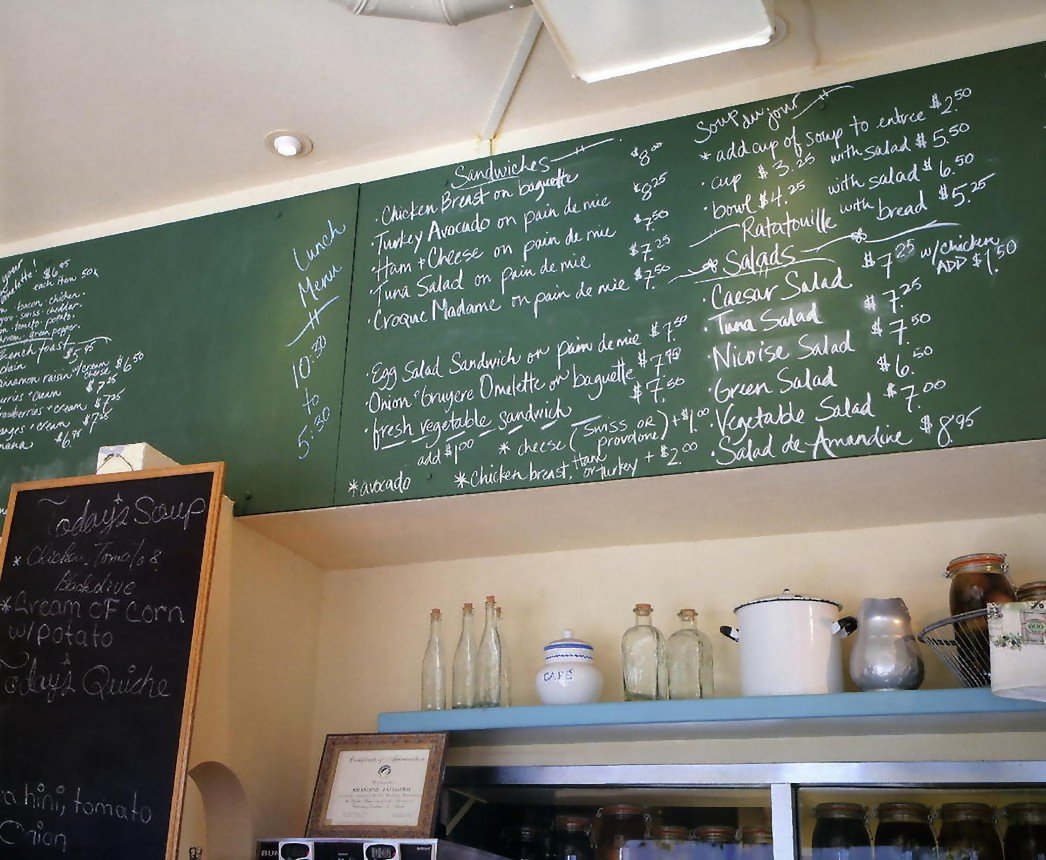 $6.95
each item 50¢
bacon. chicken.
swiss. cheddar.
tomato. potato.
green pepper.
french toast $5.95
plain
cinnamon raisin w/cream cheese $6.50
$7.25
strawberries + cream $7.25
+ cream $7.25
$6.95
Lunch
Menu
10:30
to
5:30
Sandwiches
·Chicken Breast on baguette $8.00
·Turkey Avocado on pain de mie $8.25
·Ham + Cheese on pain de mie $7.50
·Tuna Salad on pain de mie $7.25
·Croque Madame on pain de mie $7.50
·Egg Salad Sandwich on pain de mie $7.50
·Onion + Gruyere Omelette on baguette $7.95
·fresh vegetable sandwich $7.50
add $1.00 * cheese (swiss or provolone) + $1.00
*avocado *Chicken breast, Ham, or turkey + $2.00
Soup du jour
* add cup of soup to entree $2.50
· cup $3.25 with salad $5.50
· bowl $4.25 with salad $6.50
Ratatouille with bread $5.25
Salads
·Caesar Salad $7.25 w/chicken ADD $1.50
·Tuna Salad $7.25
·Nicoise Salad $7.50
·Green Salad $6.50
·Vegetable Salad $7.00
·Salad de Amandine $8.95
Today's Soup
* Chicken, Tomato &
Black olive
*Cream of Corn
w/potato
Today's Quiche
tomato
Onion
CAFÉ
Certificate of Appreciation
BUNN